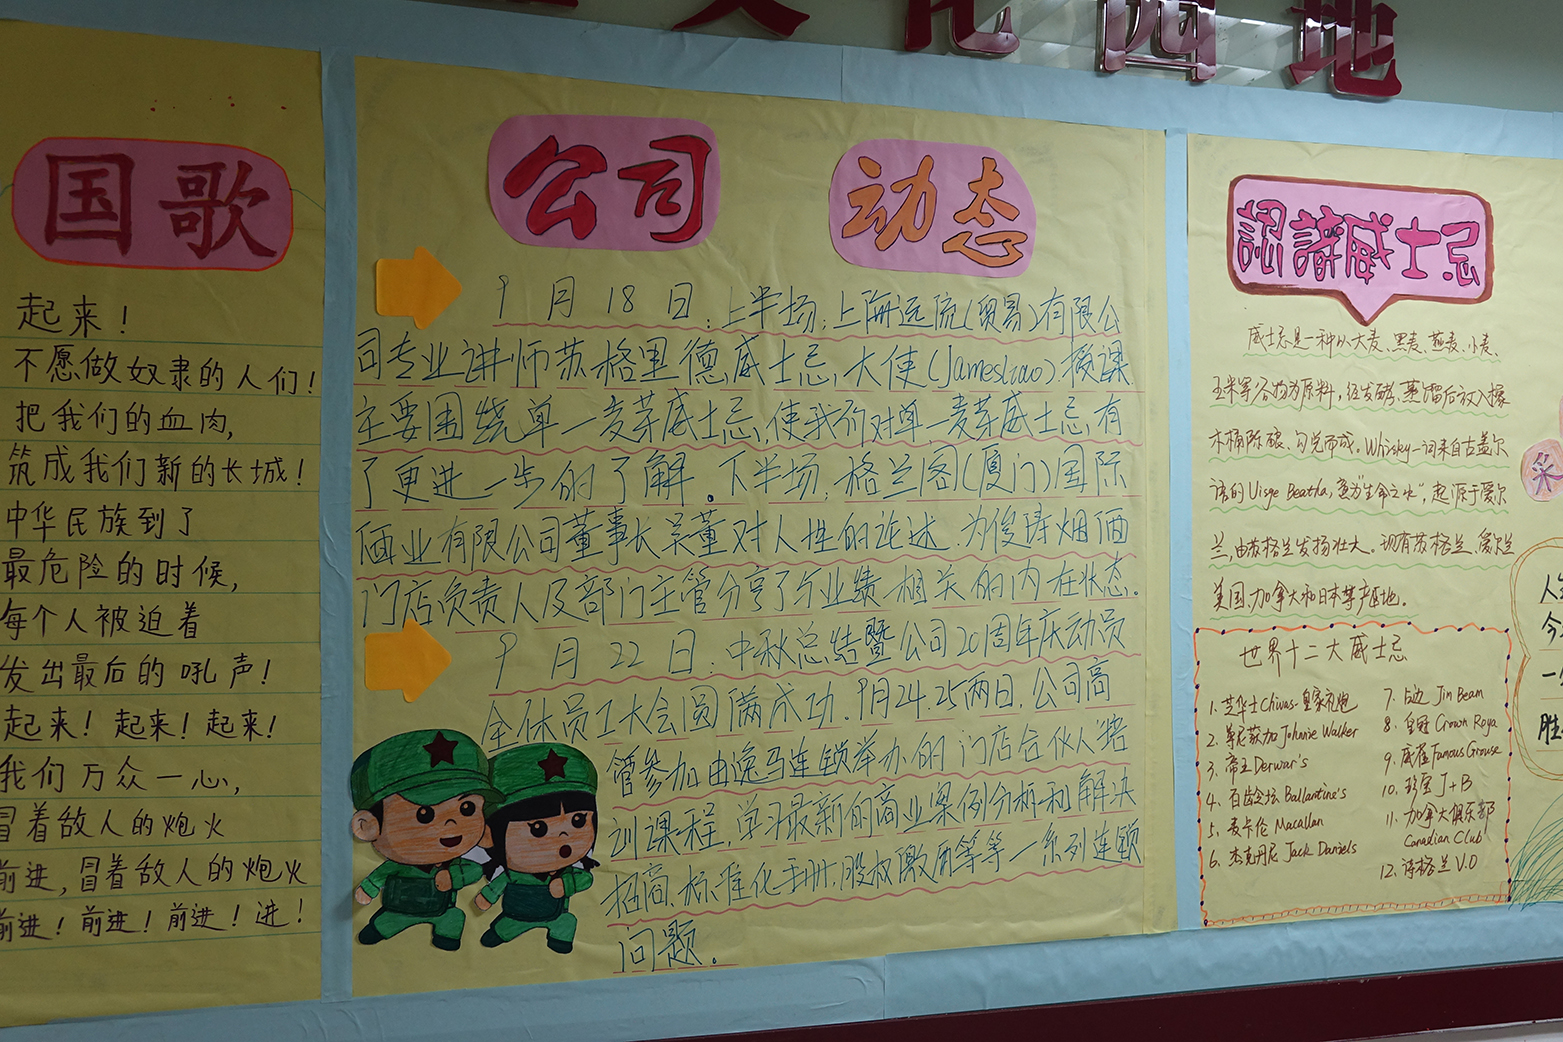 化园地
国歌
起来！
不愿做奴隶的人们！
把我们的血肉，
筑成我们新的长城！
中华民族到了
最危险的时候，
每个人被迫着
发出最后的吼声！
起来！起来！起来！
我们万众一心，
冒着敌人的炮火
前进，冒着敌人的炮火
前进！前进！前进！进！
公司 动态
9月18日：上半场：上海远流（贸易）有限公
司专业讲师苏格里德威士忌，大使（Jameshao）授课
主要围绕单一麦芽威士忌，使我们对单一麦芽威士忌有
了更进一步的了解。下半场：格兰图（厦门）国际
酒业有限公司董事长吴董对人性的论述，为俊涛烟酒
门店负责人及部门主管分享了个业绩相关的内在状态。
9月22日：中秋总结暨公司20周年庆动员
全体员工大会圆满成功。9月24.25两日，公司高
管参加由逸马连锁举办的“门店合伙人”培
训课程，学习最新的商业案例分析和解决
招商、标准化手册、股权激励等等一系列连锁
问题。
認識威士忌
威士忌是一种以大麦、黑麦、燕麦、小麦、
玉米等谷物为原料，经发酵、蒸馏后放入橡
木桶陈酿、勾兑而成。Whisky一词来自古盖尔
语的Uisge Beatha，意为“生命之水”，起源于爱尔
兰，由苏格兰发扬壮大。现有苏格兰、爱尔兰
美国、加拿大和日本等产区地。
世界十二大威士忌
1. 芝华士 Chivas-皇家礼炮
2. 尊尼获加 Johnnie Walker
3. 帝王 Derwar's
4. 百龄坛 Ballantine's
5. 麦卡伦 Macallan
6. 杰克丹尼 Jack Daniels
7. 占边 Jin Beam
8. 皇冠 Crown Roya
9. 威雀 Famous Grouse
10. 珍宝 J+B
11. 加拿大俱乐部
Canadian Club
12. 诗格兰 V.O
人
今
一
胜